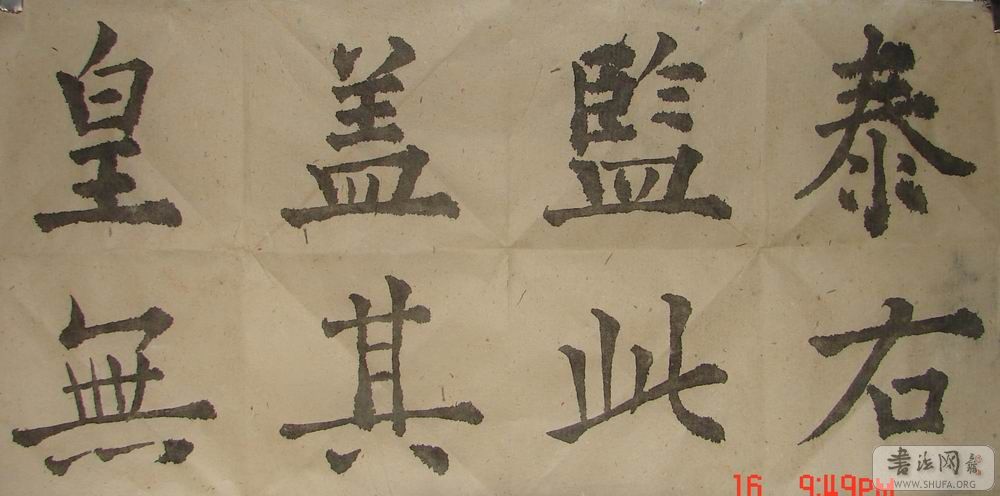 泰右
監此
盖其
皇無
16 9:49PM
书法网
WWW.SHUFA.ORG